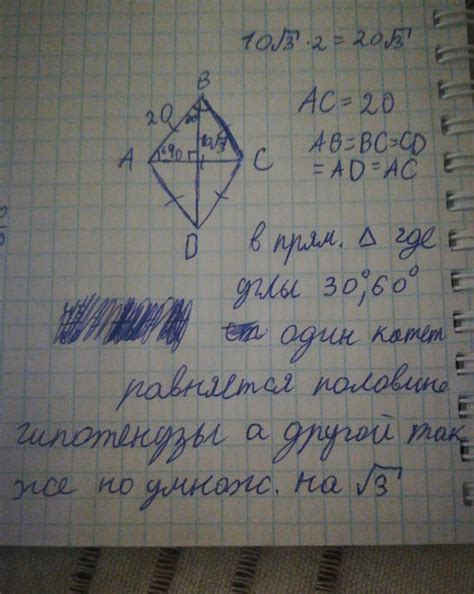 10√3 · 2 = 20√3
B
20
AC = 20
10√3
AB=BC=CD
=AD=AC
A
C
D
в прям. Δ где
углы 30°,60°
один катет
равняется половине
гипотенузы а другой так
же но умнож. на √3